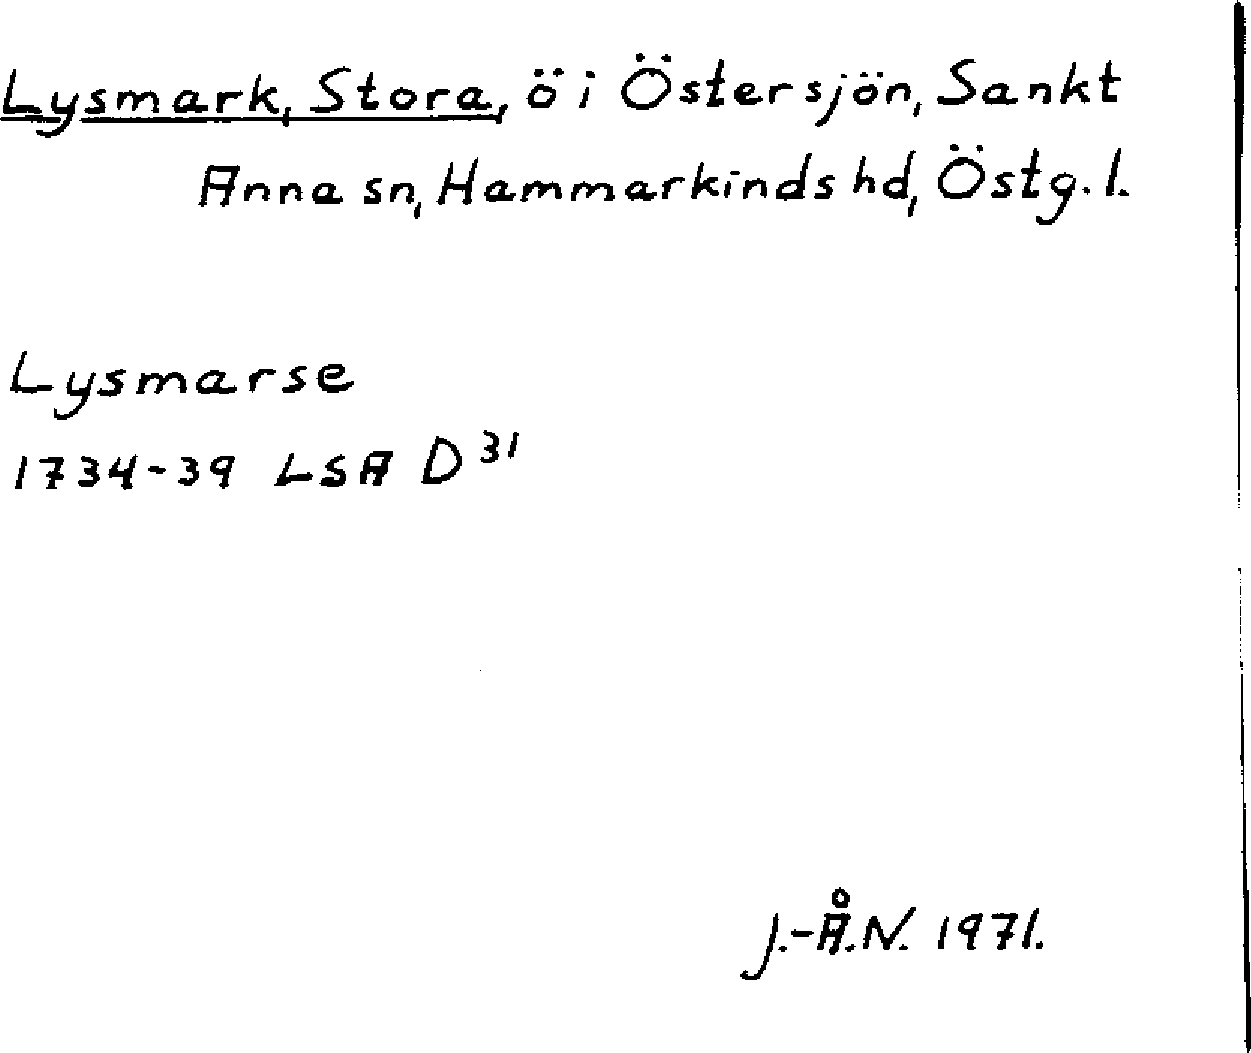 Lysmark, Stora, ö i Östersjön, Sankt
Anna sn, Hammarkinds hd, Östg. l.
Lysmarse
1734-39 LSA D³¹
J.-Å.N. 1971.